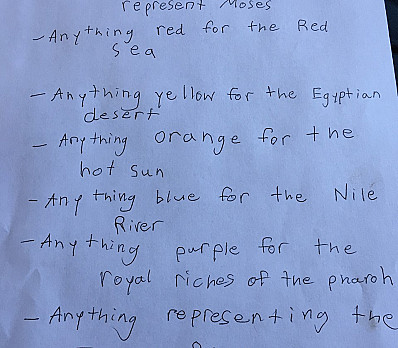 represent Moses
- Anything red for the Red
Sea
- Anything yellow for the Egyptian
desert
- Anything orange for the
hot sun
- Anything blue for the Nile
River
- Anything purple for the
royal riches of the pharoh
- Anything representing the